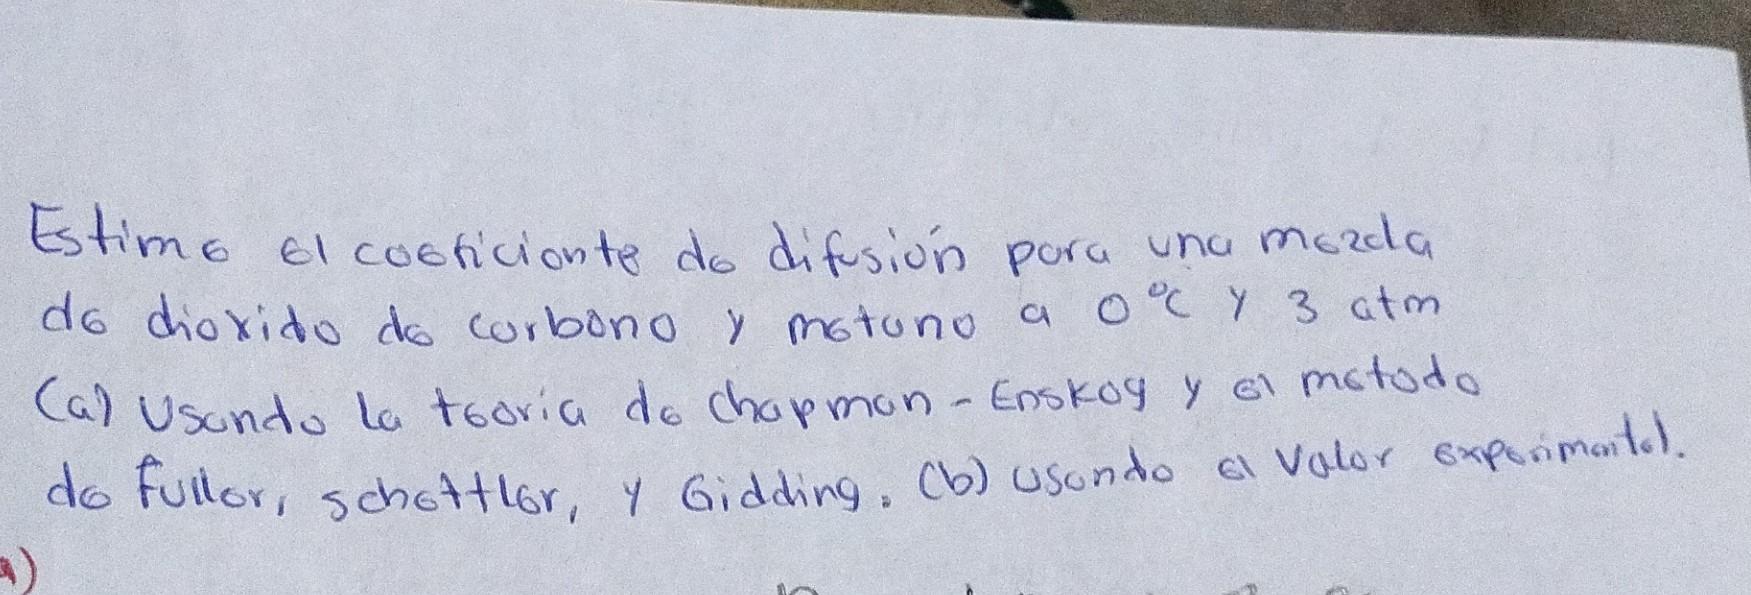 Estime el coeficiente de difusión para una mezcla
de dioxido de carbono y metano a 0 °C y 3 atm
(a) Usando la teoria de Chapman - Enskog y el metodo
de Fuller, schettler, y Gidding. (b) usando el valor experimental.
a)